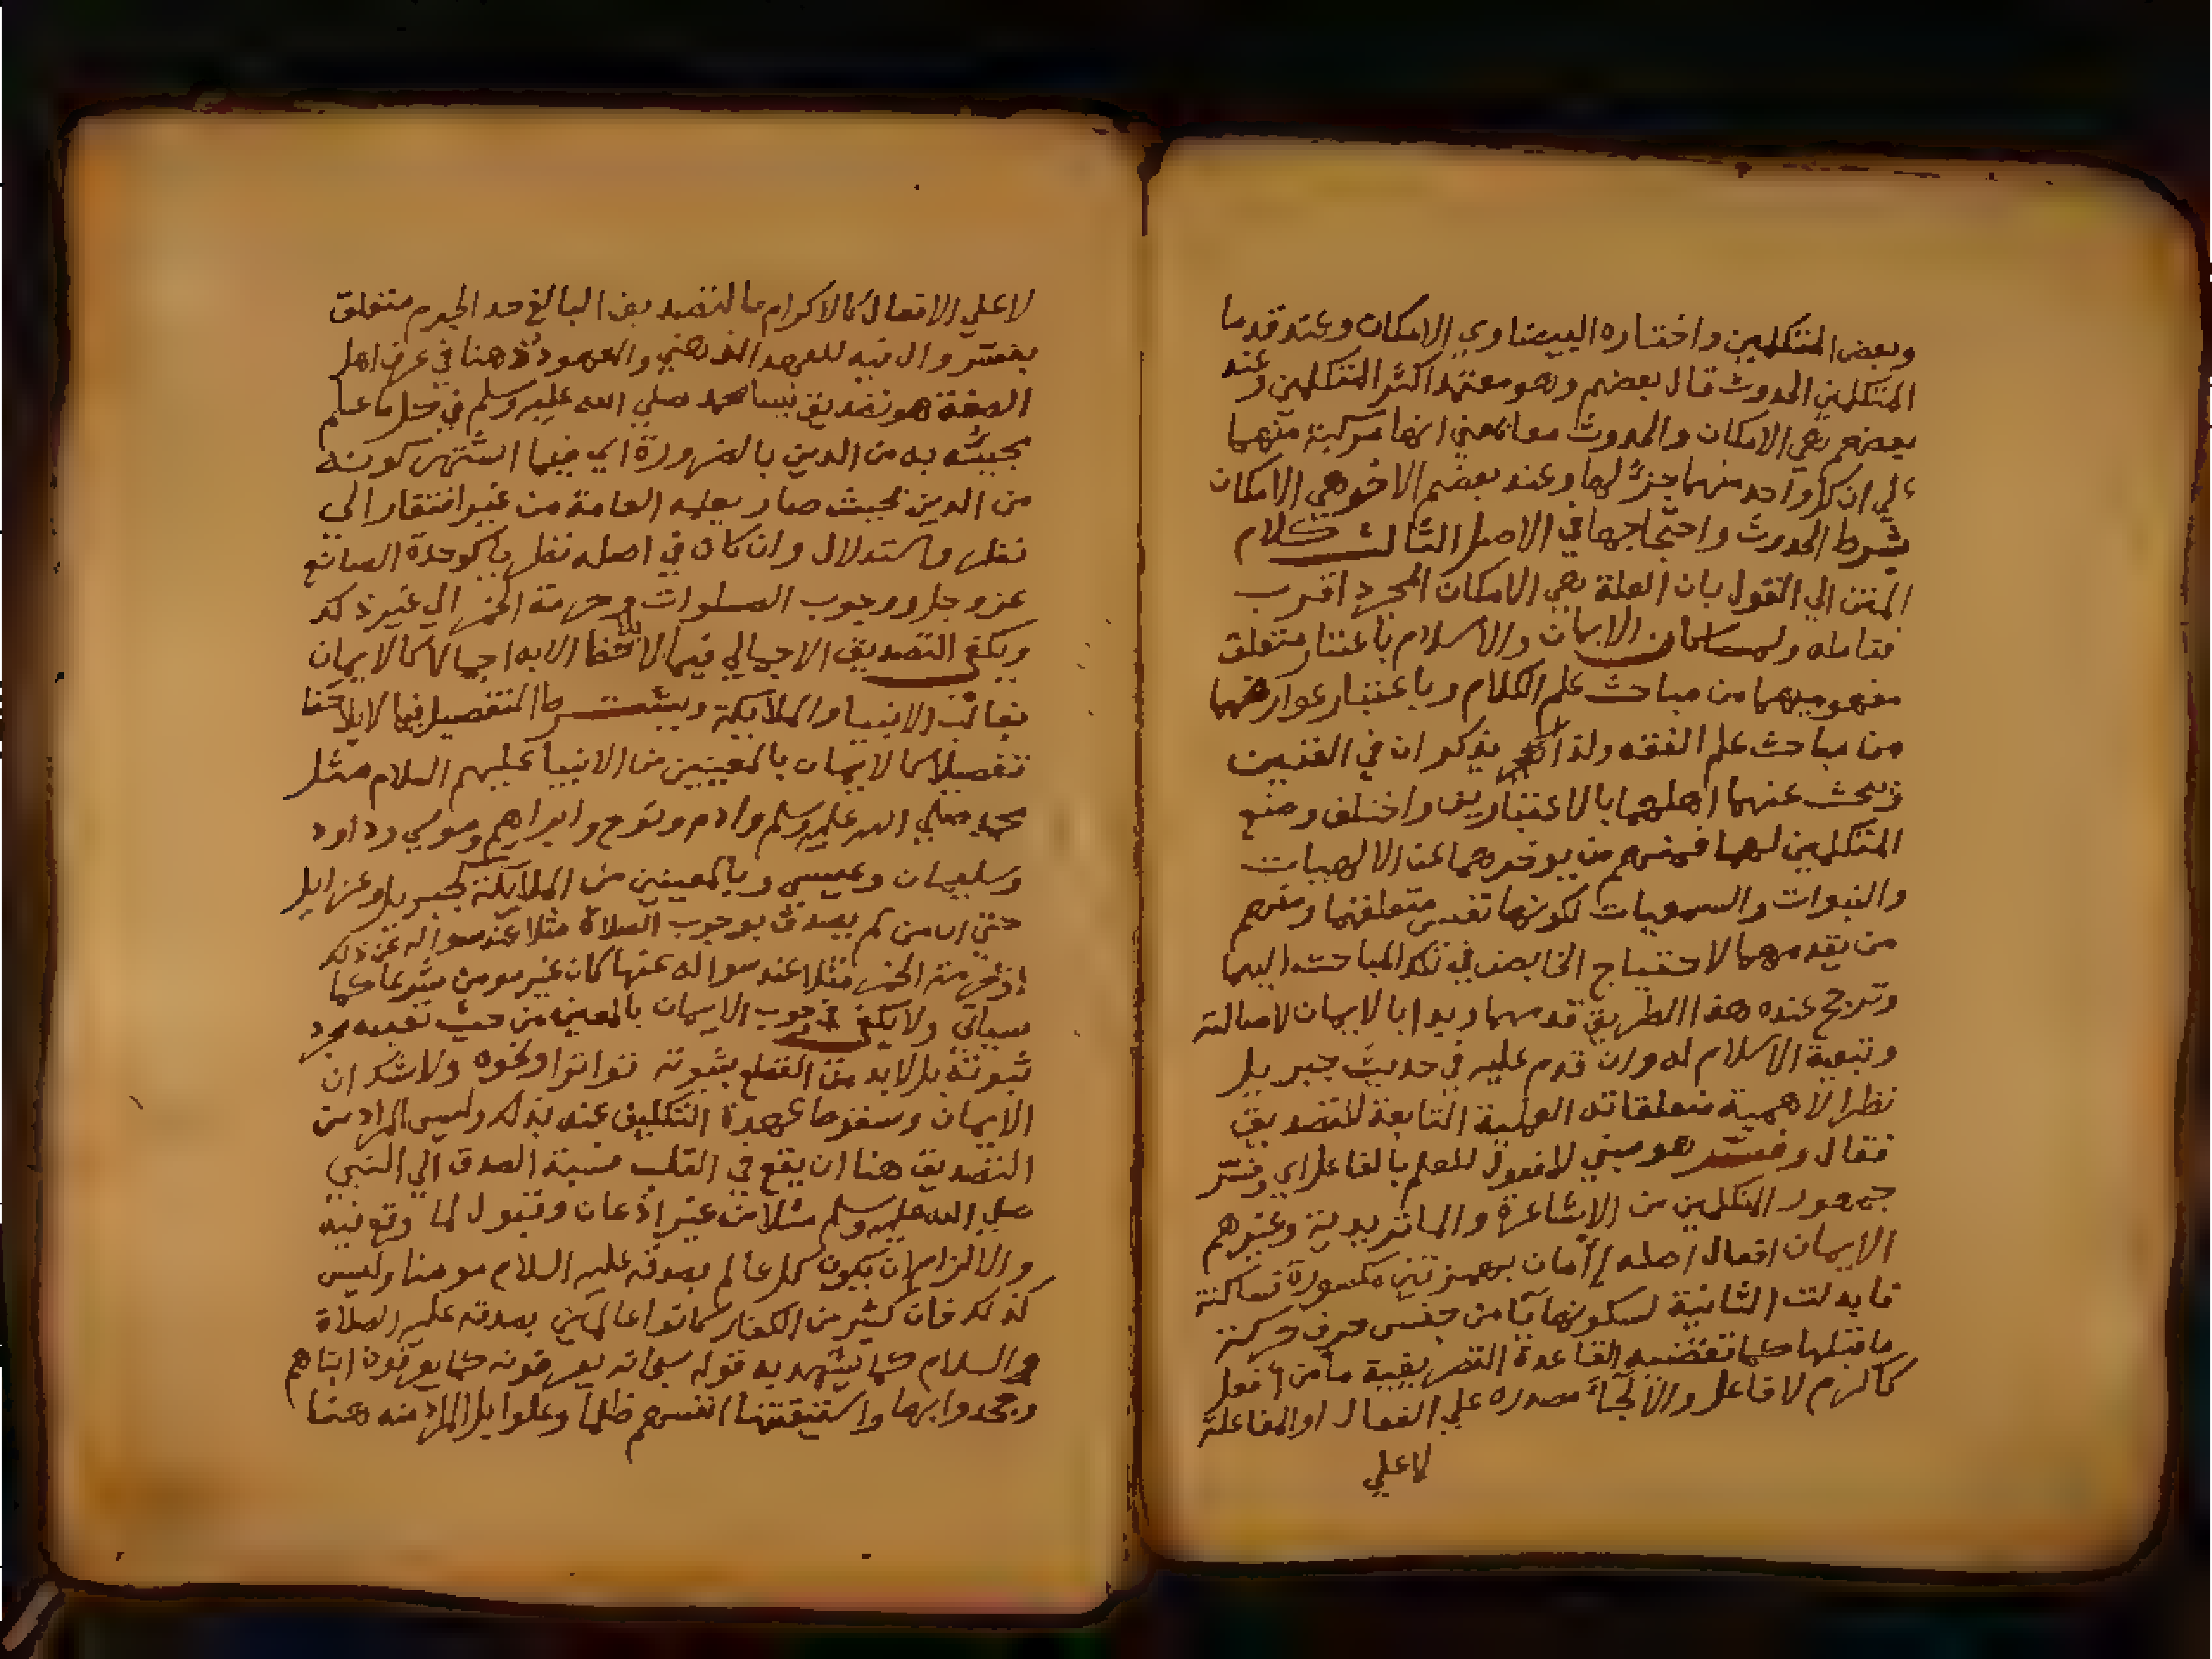 وبعض المتكلمين واختاره البيضاوي الامكان وعند قدما
المتكلمين الحدوث قال بعضهم وهو معتمد اكثر المتكلمين وعند
بعضهم هي الامكان والحدوث معا بمعني انها مركبة منهما
علي ان كل واحد منهما جزء لها وعند بعضهم الاخر هي الامكان
بشرط الحدوث واحتجاجها في الاصل الثالث كلام
المتن الي القول بان العلة هي الامكان المجرد اقرب
فتامله ولما كان الايمان والاسلام باعتبار متعلق
مفهوميهما من مباحث علم الكلام وباعتبار عوارضهما
من مباحث علم الفقه ولذا يذكران في الفنين
ويبحث عنهما اهلهما بالاعتبارين واختلف وضع
المتكلمين لهما فمنهم من يوخرهما عن الالهيات
والنبوات والسمعيات لكونها نفس متعلقهما ومنهم
من يقدمهما لاحتياج الخايض في تلك المباحث اليهما
وترجح عنده هذا الطريق قدمهما وبدا بالايمان لاصالته
وتبعية الاسلام له وان قدم عليه في حديث جبريل
نظرا لاهمية متعلقاته العملية التابعة للتصديق
فقال وفسر هو مبني للمفعول للعلم بالفاعل اي وفسر
جمهور المتكلمين من الاشاعرة والماتريدية وغيرهم
الايمان افعال اصله اأمان بهمزتين مكسورة فساكنة
فابدلت الثانية لسكونها يا من جنس حرف حركة
ما قبلها كما تقتضيه القاعدة التصريفية مامن افعل
كاكرم لا فاعل والا لجاء مصدره علي الفعال او المفاعلة
لا علي
لا علي الافعال كالاكرام بالتصديق البالغ حد الجزم متعلق
بفسر وال فيه للعهد الذهني والمعهود ذهنا في عرف اهل
الصفة هو تصديق نبينا محمد صلي الله عليه وسلم في كل ما علم
مجيئه به من الدين بالضرورة اي فيما اشتهر كونه
من الدين بحيث صار يعلمه العامة من غير افتقار الي
نظر واستدلال وان كان في اصله نظريا كوحدة الصانع
عز وجل ووجوب الصلوات وحرمة الخمر الي غير ذلك
ويكفي التصديق الاجمالي فيما لا يلاحظ الا به اجمالا كالايمان
بغالب الانبيا والملايكة ويشترط التفصيل فيما لا يلاحظ
تفصيلا كالايمان بالمعينين من الانبيا عليهم السلام مثل
محمد صلي الله عليه وسلم وادم ونوح وابراهيم وموسي وداود
وسليمان وعيسي وبالمعينين من الملايكة كجبريل وعزرايل
حتي ان من لم يصدق بوجوب الصلاة مثلا عند سواله عن ذلك
او بحرمة الخمر مثلا عند سواله عنها كان غير مومن شرعا كما
سياتي ولا يكفي في وجوب الايمان بالمعين من حيث تعيينه مجرد
ثبوته بل لابد من القطع بثبوته تواترا ونحوه ولا شك ان
الايمان عهدة التكليف عنه بذلك وليس المراد من
التصديق هنا ان يقع في القلب نسبة الصدق الي النبي
صلي الله عليه وسلم مثلا من غير اذعان وقبول لما وقع فيه
والا لزم ان يكون كل عالم بصدقه عليه السلام مومنا وليس
كذلك فان كثير من الكفار كانوا عالمين بصدقه عليه الصلاة
والسلام كما يشهد به قوله سبحانه يعرفونه كما يعرفون ابناهم
وجحدوا بها واستيقنتها انفسهم ظلما وعلوا بل المراد منه هنا